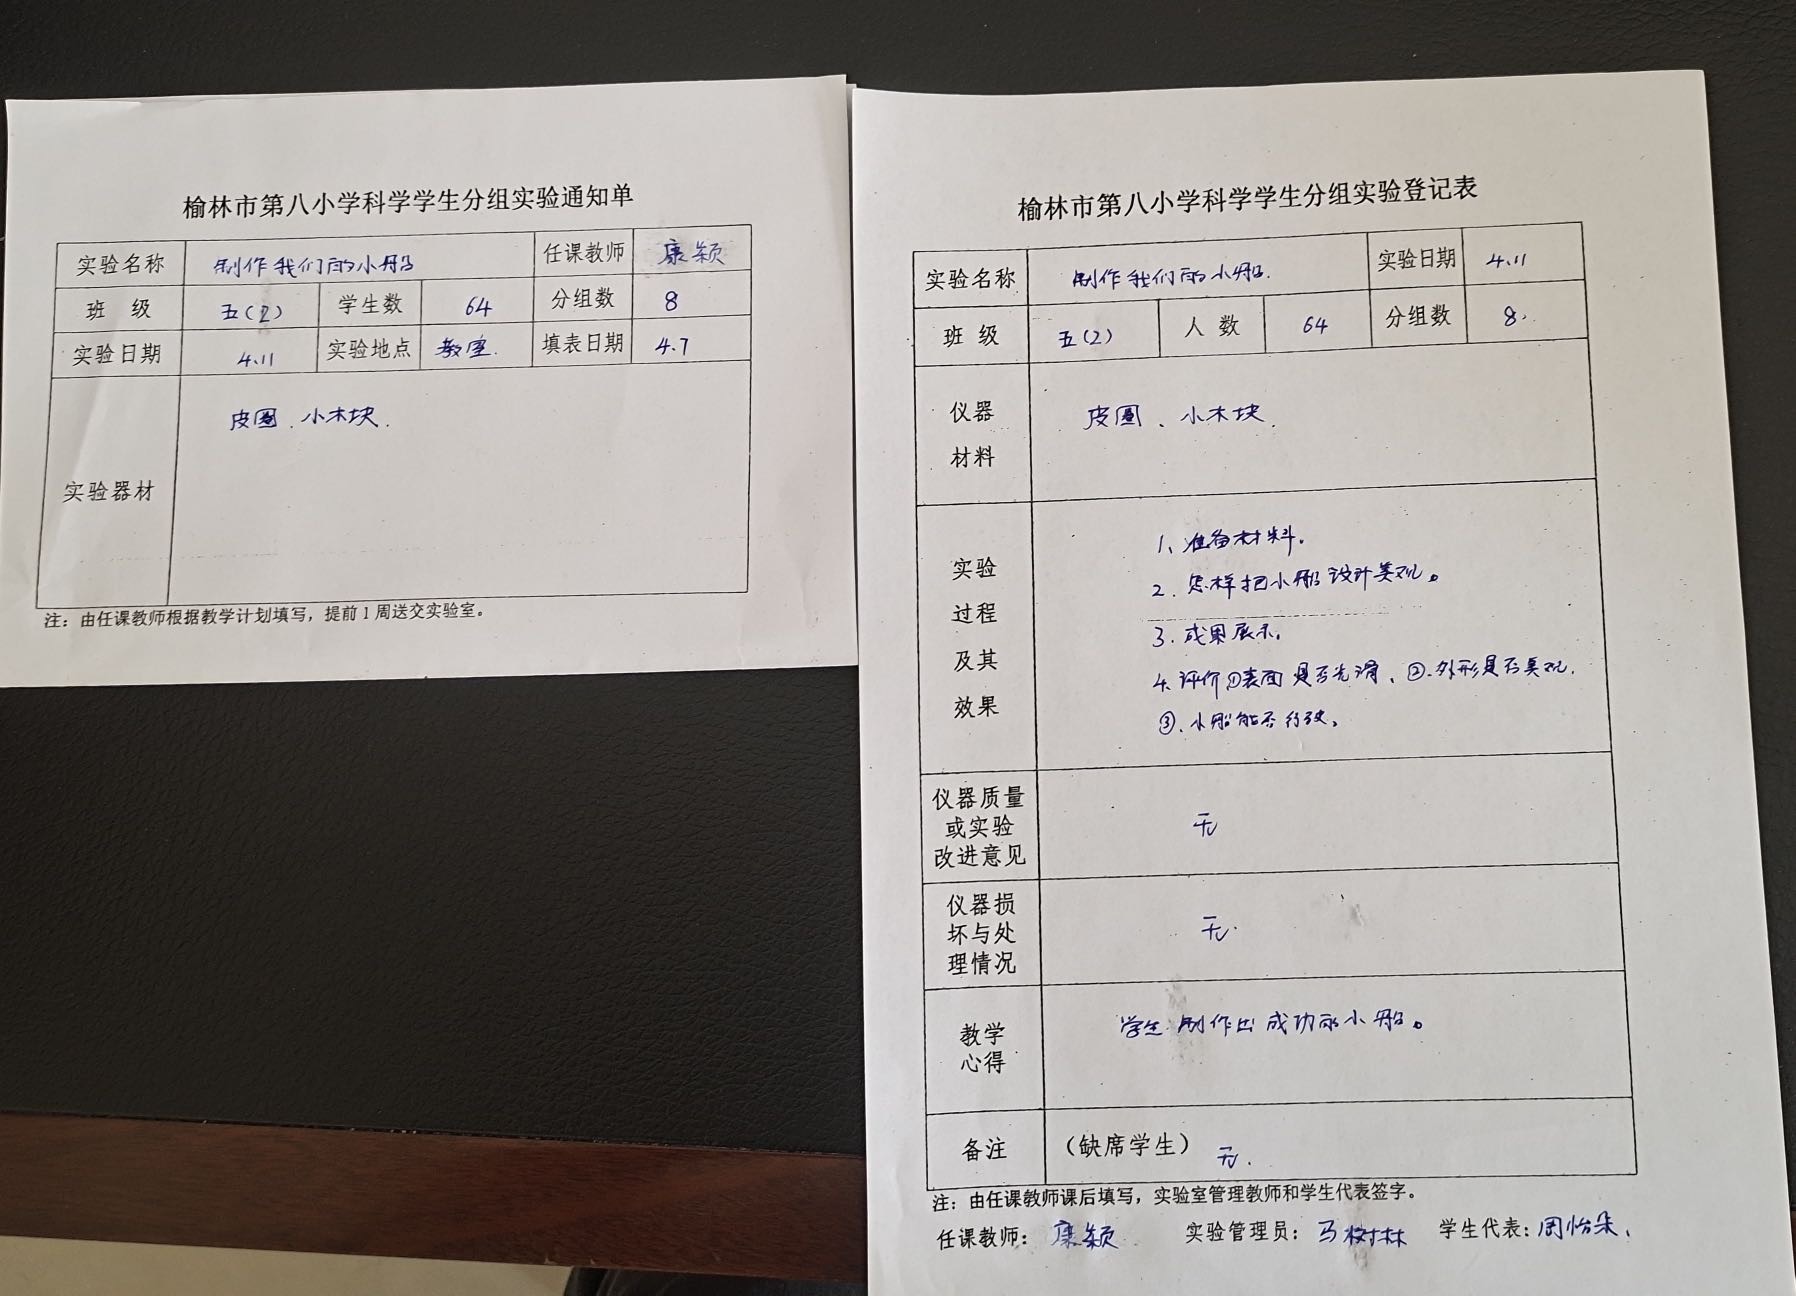 榆林市第八小学科学学生分组实验通知单
实验名称 制作我们的小船 任课教师 康颖
班 级 五(2) 学生数 64 分组数 8
实验日期 4.11 实验地点 教室. 填表日期 4.7
实验器材 皮圈、小木块.
注：由任课教师根据教学计划填写，提前1周送交实验室。
榆林市第八小学科学学生分组实验登记表
实验名称 制作我们的小船. 实验日期 4.11
班 级 五(2) 人 数 64 分组数 8.
仪器
材料
皮圈、小木块.
实验
过程
及其
效果
1、准备材料。
2. 怎样把小船设计美观。
3. 成果展示。
4. 评价①表面是否光滑、②.外形是否美观.
③.小船能否行驶。
仪器质量
或实验
改进意见
无
仪器损
坏与处
理情况
无.
教学
心得
学生制作出成功的小船。
备注 （缺席学生） 无.
注：由任课教师课后填写，实验室管理教师和学生代表签字。
任课教师： 康颖 实验管理员： 马树林 学生代表：周怡朵.